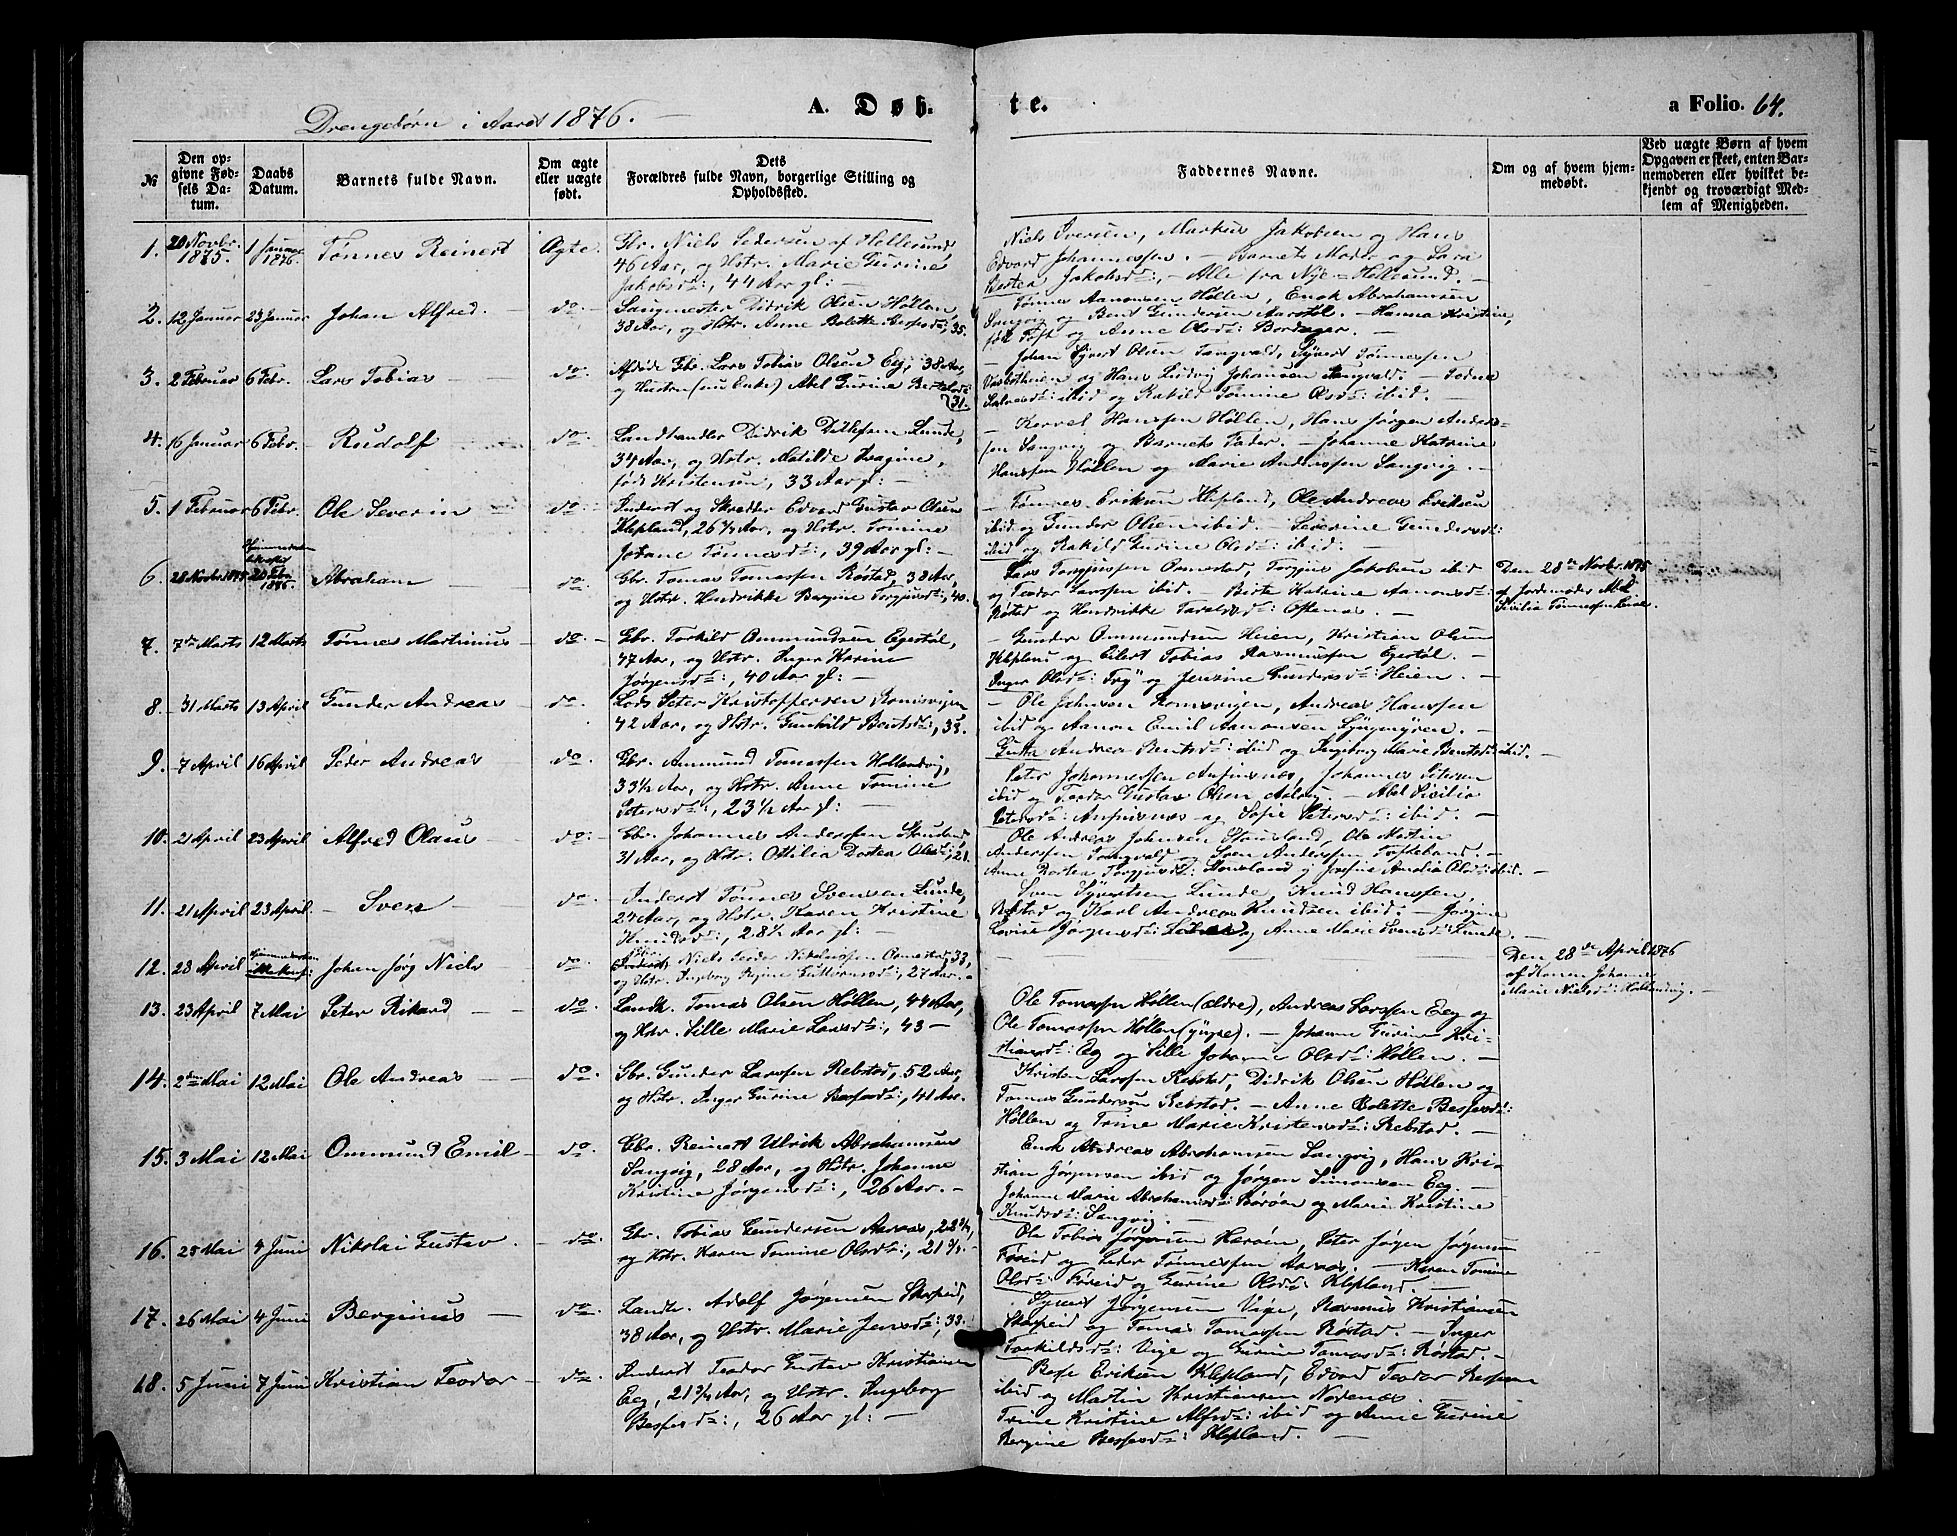 A. Døb-
te.
a Folio. 64.
Drengebørn i Aaret 1876.
№
Den op-
givne Fød-
sels Da-
tum.
Daabs
Datum.
Barnets fulde Navn.
Om ægte
eller uægte
født.
Dets
Forældres fulde Navn, borgerlige Stilling og
Opholdssted.
Faddernes Navne.
Om og af hvem hjem-
medøbt.
Ved uægte Børn af hvem
Opgaven er skeet, enten Bar-
nemoderen eller hvilket be-
kjendt og troværdigt Med-
lem af Menigheden.
1. 20 Novbr. 1875. 1 Januar 1876. Tønnes Reinert Ægte.
Gbr. Niels Pedersen af Hellesund,
46 Aar, og Hstr. Marie Gurine
Jakobsd:, 44 Aar gl: —
Niels Iversen, Markus Jakobsen og Hans
Edvard Johannessen. — Barnets Moder og Sara
Bertea Jakobsd:, — Alle fra Nye-Hellesund. —
2. 12 Januar 23 Januar Johan Alfred. — do —
Didrik Olsen Høllen,
38 Aar, og Hstr. Anne Bolette Bespersd:, 35.
Tønnes Aanonsen Høllen, Enok Abrahamsen
Langvig og Bent Gundersen Aarstøl. — Hanna Kristine,
født Toft og Anne Olsd: —
3. 2 Februar 6 Febr. Lars Tobias — do.
Afdøde Gbr. Lars Tobias Olsen Eeg, 38 Aar,
og Hustru (nu Enke) Abel Gurine
31.
— Johan Syvert Olsen Tangvald, Syvert Tønnessen
og Hans Ludvig Johansen Tangvald. —
ibid og Rakild Tomine Olsd: ibid. —
4. 16 Januar 6 Febr. — Rudolf do.
Landhandler Didrik Ditlefsen Lunde,
34 Aar, og Hstr. Matilde
født Kristensen, 33 Aar gl: —
Hanssen Høllen, Hans Jørgen Anders-
sen Langvig og Barnets Fader. — Johanne Katrine
Hanssen Høllen og Marie Anderssen Langvig. —
5. 1 Februar 6 Febr. Ole Severin — do —
Inderst og Skrædder Edvard Gustav Olsen
Klepland, 26 ½ Aar, og Hstr. Tomine
Johane Tønnesd:, 39 Aar gl: —
— Tønnes Eriksen Klepland, Ole Andreas Eriksen
ibid og Gunder Olsen ibid. — Severine Gundersd:
ibid og Rakild Gurine Olsd: ibid: —
6. 28 Novbr. 1875 20 Febr. 1876. Abraham — do. —
Gbr. Tomas Tomassen Røstad, 38 Aar,
og Hstr. Hendrikke Bergine Torgjusd:, 40.
Lars Torgjussen Omestad, Torgjus Jakobsen ibid
og Teodor Larssen ibid. — Birte Katrine Aanonsd:
Røstad og Hendrikke Taraldsd: Oftenæs. —
Den 28de Novbr. 1875
af Jordemoder
7. 7de Marts 12 Marts Tønnes Martinius — do. —
Gbr. Torkild Ommundsen Egestøl,
47 Aar, og Hstr. Inger Karine
Jørgensd:, 40 Aar gl: —
— Gunder Ommundsen Heien, Kristian Olsen
Klepland og Eilert Tobias Rasmussen Egestøl. —
Inger Olsd: Try og Jenzine Gundersd: Heien. —
8. 31 Marts 13 April Gunder Andreas — do. —
Lods Peter Kristoffersen Romsvigen
42 Aar, og Hstr. Gunhild Bentsd:, 33.
— Ole Johnsen Romsvigen, Andreas Hanssen
ibid og Aanon Emil Aanonsen
Andrea Bentsd: ibid og Ingeborg Marie Bentsd: ibid. —
9. 7 April 16 April Peder Andreas — do.
Gbr. Ammund Tomassen Hollandvig,
33½ Aar, og Hstr. Anne Tomine
Petersd:, 23½ Aar gl: —
Peter Johannessen Anfinsnæs, Johannes Petersen
ibid og Teodor Gustav Olsen — Abel Sicilia
Petersd: Anfinsnæs og Sofie Petersd: ibid. —
10. 2 April 23 April Alfred Olaus — do. —
Gbr. Johannes Anderssen
31 Aar, og Hstr. Ottilia Dortea Olsd:, 21.
Ole Andreas Johnsen Stausland, Ole Martin
Anderssen Tangvald og Sven Anderssen —
Anne Dortea Torgjusd: Stausland og Josefine Amalia Olsd: ibid. —
11. 21 April 23 April. — Sven — do. —
— Inderst Tønnes Svensen Lunde,
27 Aar, og Hstr. Karen Kristine
Knudsd:, 28½ Aar gl: —
Sven Syvertsen Lunde, Knud Hanssen
Røstad og Karl Andreas Knudsen ibid. — Jørgine
Lovise Jørgensd: og Anne Marie Svensd: Lunde. —
12. 28 April Johan Jørg Niels do. —
Niels Peder Nikolaissen Omestad, 33,
og Hstr. Ingeborg Regine Guttormsd:, 27 Aar. —
Den 28de April 1876
af Konen Johanne
Marie Nielsd: Hollandvig. —
13. 23 April 7 Mai Peter Rikard — do. —
Landh. Tomas Olsen Høllen, 44 Aar,
og Hstr. Sille Marie Larsd:, 43 —
Ole Tomassen Høllen (ældre), Andreas Larssen Eeg og
Ole Tomassen Høllen (yngre). — Johanne Gurine Kri-
stiansd: Eeg og Sille Johanne Olsd: Høllen. —
14. 2den Mai 12 Mai Ole Andreas — do. —
Gbr. Gunder Larssen Rebstad, 52 Aar,
og Hstr. Inger Gurine Bespersd:, 41 Aar.
Kristen Larssen Rebstad, Didrik Olsen Høllen og
Tomas Gundersen Rebstad. — Anne Bolette Bespersd:
Høllen og Trine Marie Kristensd: Rebstad. —
15. 3 Mai 12 Mai Ommund Emil — do. —
Gbr. Reinert Ulrik Abrahamsen
Langvig, 28 Aar, og Hstr. Johanne
Kristine Jørgensd:, 26 Aar. —
Enok Andreas Abrahamsen Langvig, Hans Kri-
stian Jørgensen ibid og Jørgen Simonsen Eeg. —
Johanne Marie Abrahamsd: Borøen og Marie Kristine
Knudsd: Langvig. —
16. 25 Mai 4 Juni Nikolai Gustav. — do. —
Gbr. Tobias Gundersen Aaros, 22 ¾,
og Hstr. Karen Tomine Olsd:, 21 ¾. —
Ole Tobias Jørgensen Herøen, Peter Jørgen Jørgensen
Føreid og Peder Tønnessen Aaros. — Karen Tomine
Olsd: Føreid og Gurine Olsd: Klepland. —
17. 26 Mai 4 Juni Berginus — do. —
Landh. Adolf Jørgensen Skarpeid,
38 Aar, og Hstr. Marie Jensd:, 33.
Syvert Jørgensen Vige, Rasmus Kristiansen
Skarpeid og Tomas Tomassen Røstad. — Inger
Torkildsd: Vige og Gurine Tomasd: Røstad. —
18. 5 Juni 7 Juni Kristian Teodor — do. —
Inderst Teodor Gustav Kristiansen
Eeg, 21 ¾ Aar, og Hstr. Ingeborg
Bespersd:, 26 Aar gl: —
Eriksen Klepland, Edvard Teodor Bespersen
ibid og Martin Kristiansen Nodenæs. —
Trine Kristine Alfsd: ibid og Anne Gurine
Bergine Bespersd: Klepland. —